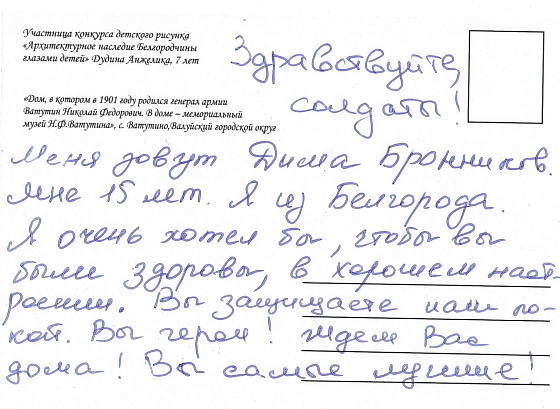 Участница конкурса детского рисунка
«Архитектурное наследие Белгородчины
глазами детей» Дудина Анжелика, 7 лет
Здравствуйте,
солдаты!
«Дом, в котором в 1901 году родился генерал армии
Ватутин Николай Федорович. В доме – мемориальный
музей Н.Ф.Ватутина», с. Ватутино,Валуйский городской округ
Меня зовут Дима Бронников.
Мне 15 лет. Я из Белгорода.
Я очень хотел бы, чтобы вы
были здоровы, в хорошем наст-
роении. Вы защищаете наш по-
кой. Вы герои! Ждем Вас
дома! Вы самые лучшие!